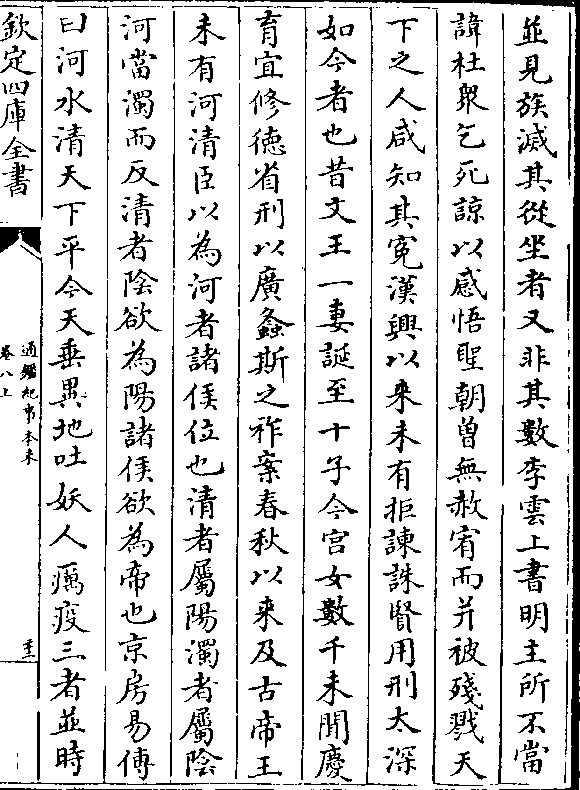 並見族滅其從坐者又非其數李雲上書明主所不當
諱杜衆乞死諒以感悟聖朝曾無赦宥而并被殘戮天
下之人咸知其寃漢興以來未有拒諫誅賢用刑太深
如今者也昔文王一妻誕至十子今宫女數千未聞慶
育宜修徳省刑以廣螽斯之祚案春秋以来及古帝王
未有河清臣以為河者諸侯位也清者屬陽濁者屬陰
河當濁而反清者陰欲為陽諸侯欲為帝也京房易傳
曰河水清天下平今天垂異地吐妖人癘疫三者並時
欽定四庫全書
通鑑紀事本末
卷八上